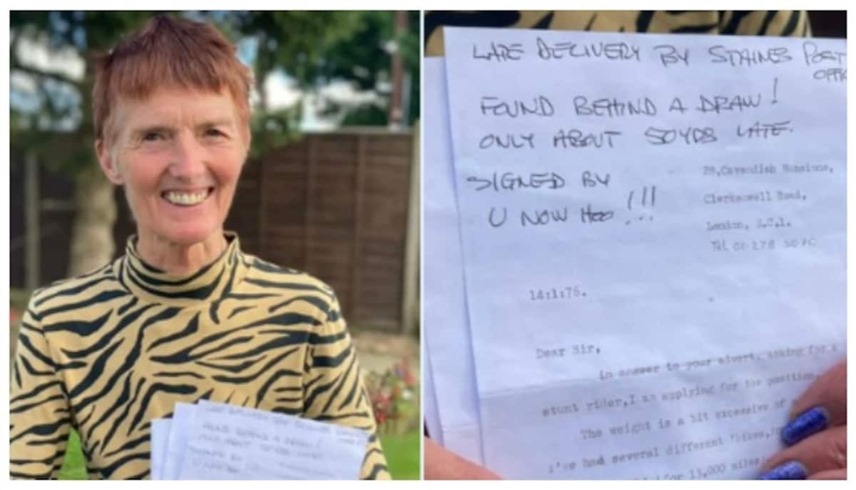 LATE DELIVERY BY STAINES POST
OFFI
FOUND BEHIND A DRAW!
ONLY ABOUT 50YRS LATE.
SIGNED BY
U NOW HOO!!!
28, Cavendish Mansions,
Clerkenwell Road,
London, E.C.1.
Tel 01 278 5070
14:1:76.
Dear Sir,
in answer to your advert, asking for a
stunt rider, I am applying for the position.
The weight is a bit excessive of
i've had several different 'bikes,
for 13,000 miles